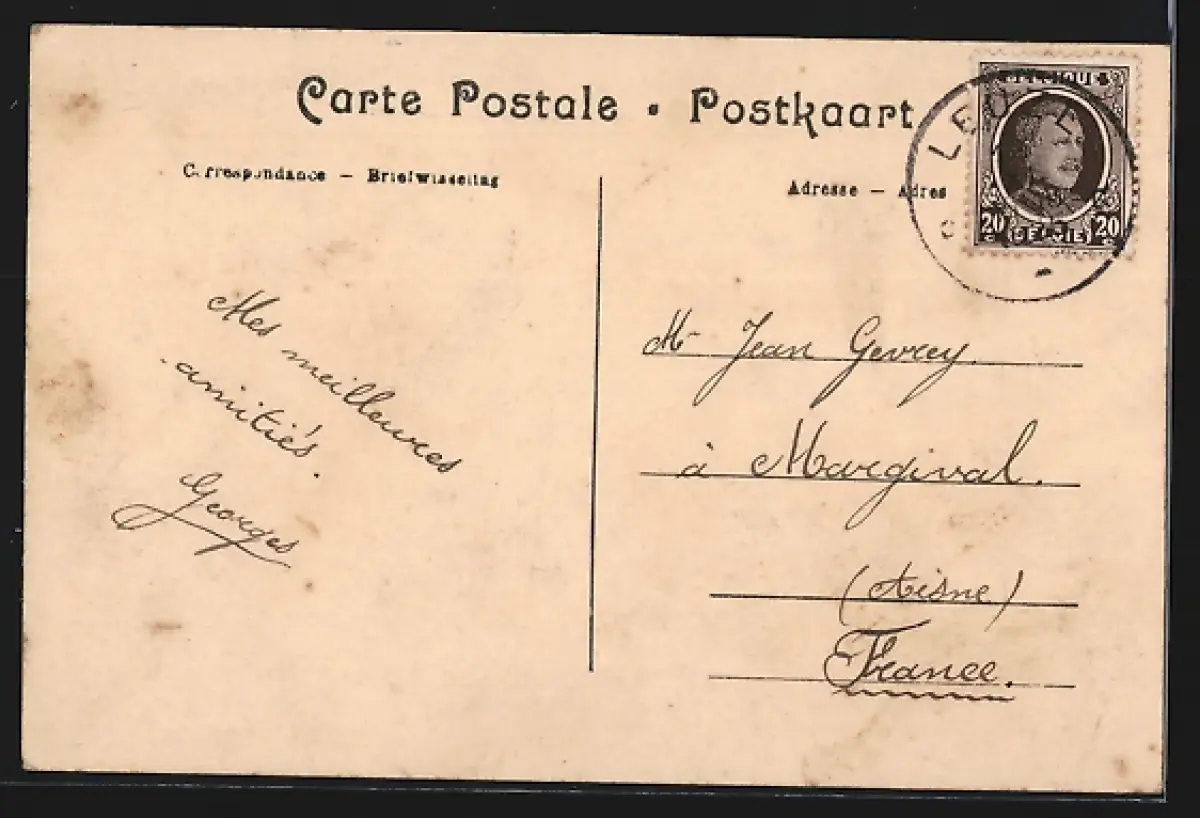 Carte Postale • Postkaart
Correspondance – Briefwisseling
Adresse – Adres
BELGIQUE
20 20
BELGIE
Mes meilleures
amitiés.
Georges
Mr Jean Gevrey.
à Margival.
(Aisne)
France.